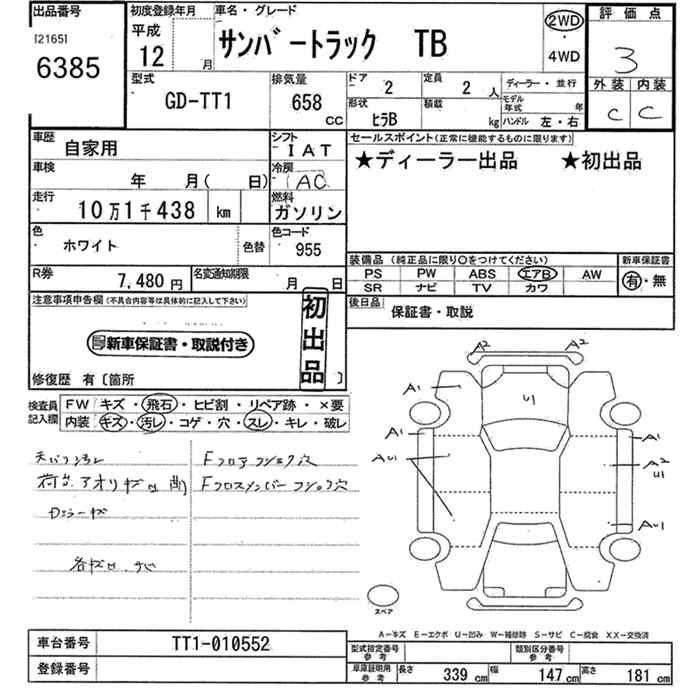 出品番号
[2165]
6385
初度登録年月
平成
12 月
車名・グレード
サンバートラック TB
2WD
・
4WD
評価点
3
外装 内装
C C
型式
GD-TT1
排気量
658 CC
ドア 2
形状 ヒラB
定員 2 人
積載 kg
ディーラー・並行
モデル年式 年
ハンドル 左・右
車歴 自家用
シフト IAT
車検 年 月( 日)
冷房 AC
走行 10万1千438 km
燃料 ガソリン
色 ホワイト 色替
色コード 955
R券 7,480円
名変通知期限 月 日
セールスポイント(正常に機能するものに限ります)
★ディーラー出品 ★初出品
装備品 (純正品に限り○をつけてください)
PS PW ABS エアB AW
SR ナビ TV カワ
新車保証書
有・無
後日品 保証書・取説
注意事項申告欄(不具合内容等は具体的に記入して下さい)
新車保証書・取説付き
初出品
修復歴 有〔箇所 〕
検査員記入欄
FW キズ・飛石・ヒビ割・リペア跡・×要
内装 キズ・汚レ・コゲ・穴・スレ・キレ・破レ
荷台アオリ
Fフロア
Fクロスメンバー
A2 A2
A1 U1
A1 A1
AU1 A2
U1
AU1
スペア
A-キズ E-エクボ U-凹み W-補修跡 S-サビ C-腐食 XX-交換済
車台番号 TT1-010552
登録番号
型式指定番号 参考
類別区分番号 参考
車庫証明用 参考 長さ 339 cm 幅 147 cm 高さ 181 cm